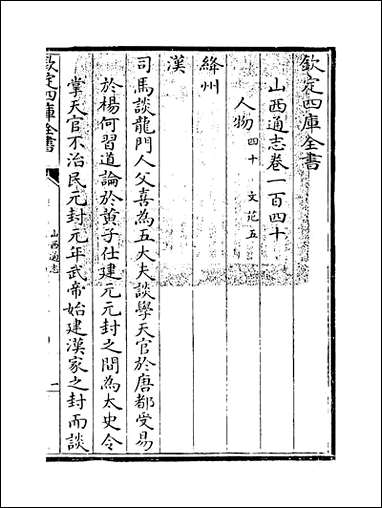 欽定四庫全書
山西通志卷一百四十
人物 四十 文苑五
絳州
漢
司馬談龍門人父喜為五大夫談學天官於唐都受易
於楊何習道論於黄子仕建元元封之間為太史令
掌天官不治民元封元年武帝始建漢家之封而談
欽定四庫全書
山西通志
一